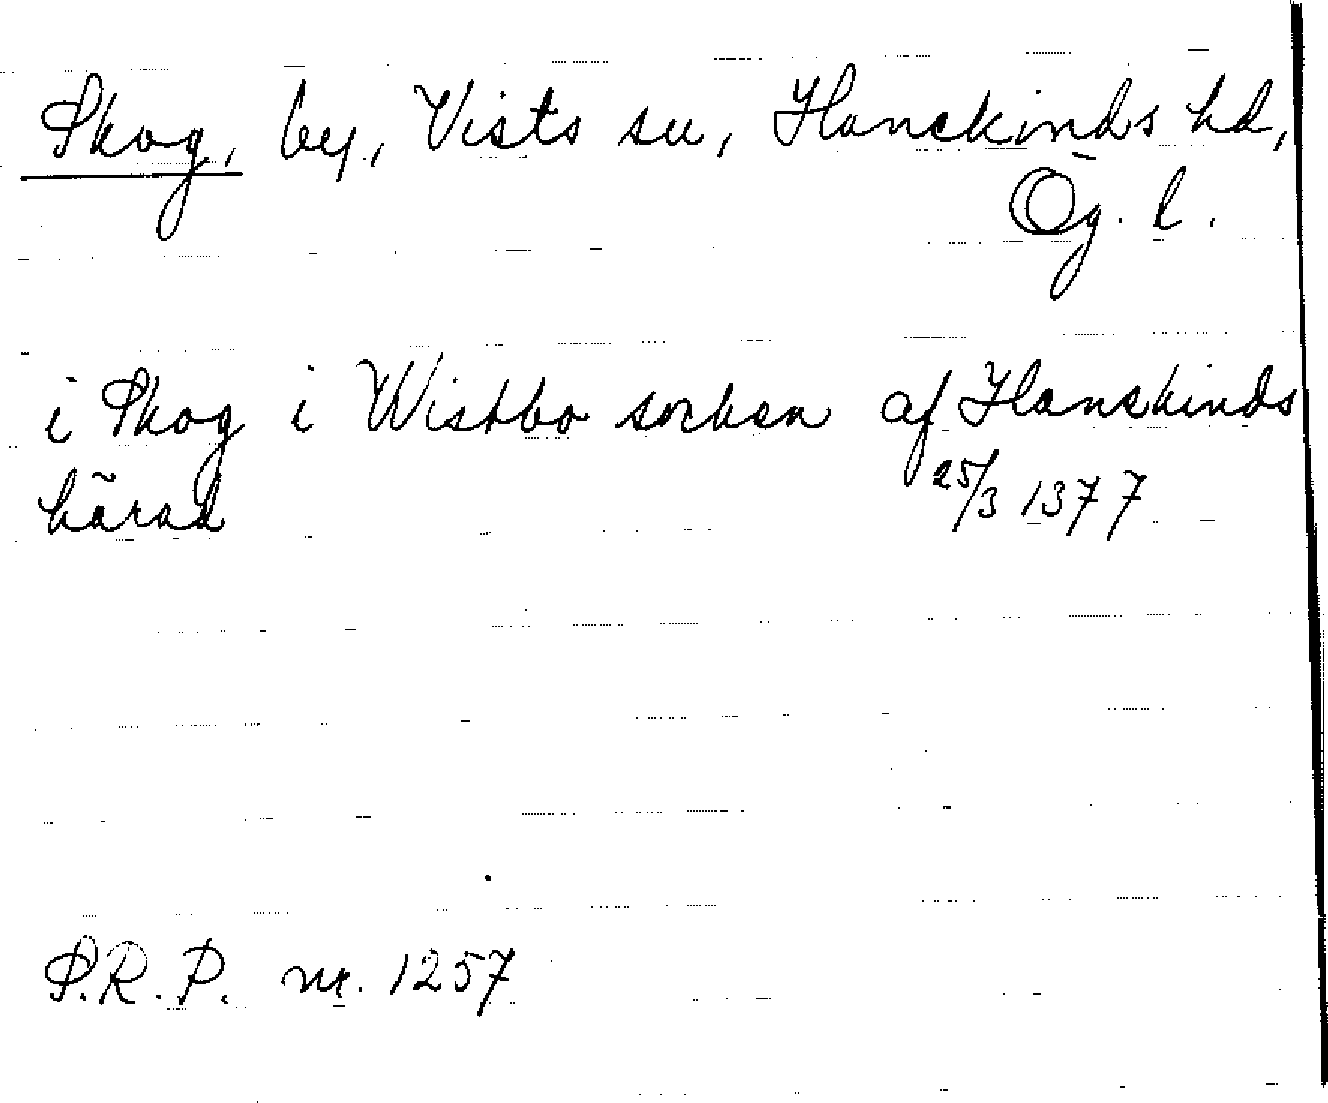 Skog, by, Vists sn, Hanekinds hd,
Ög. l.
i Skog i Wistbo socken af Hanekinds
härad 25/3 1377
S.R.P. nr. 1257